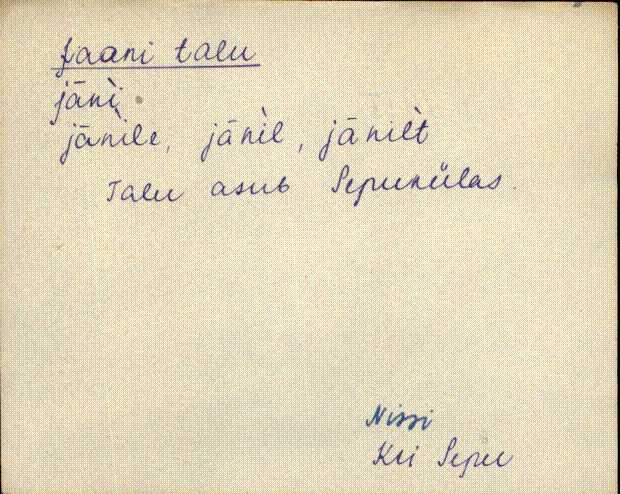 Jaani talu
jāǹi
jāǹile, jāǹil, jānil̀t
Talu asub Sepukülas.
Nissi
Kei Sepu